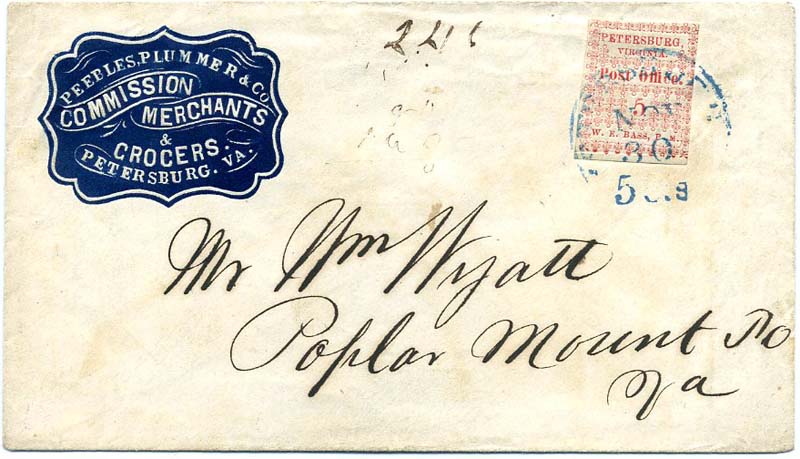 PEEBLES, PLUMMER & CO
COMMISSION
MERCHANTS
&
GROCERS.
PETERSBURG. VA.
PETERSBURG,
VIRGINIA.
Post Office.
5
W. E. BASS, P. M.
NOV
30
Mr Wm Wyatt
Poplar Mount PO
Va